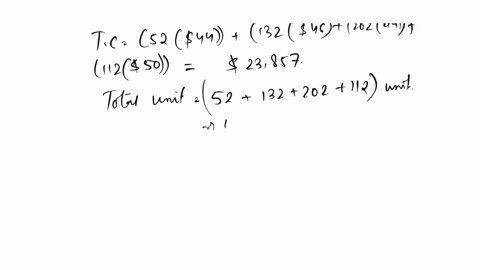 T.C = (52 ($44)) + (132 ($46) + (202 (49) +
(112 ($50)) = $ 23,857.
Total unit = (52 + 132 + 202 + 112) unit.